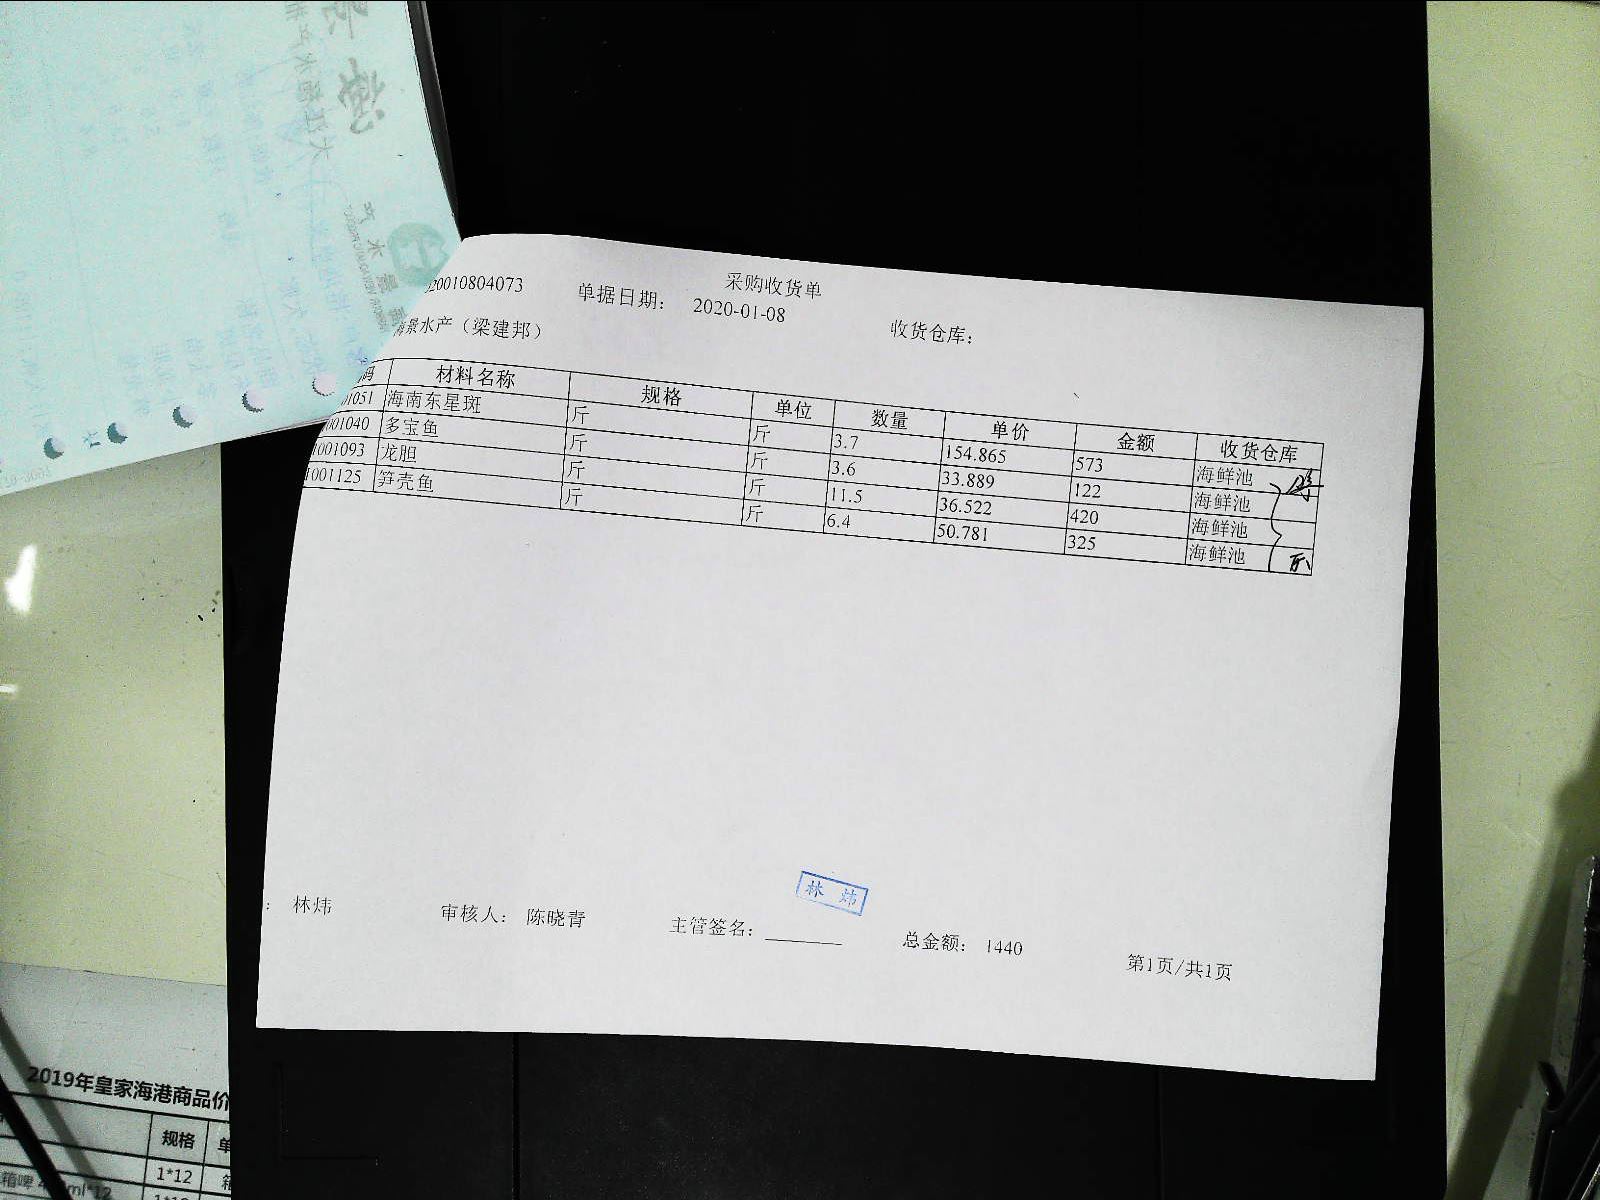 采购收货单
20010804073 单据日期: 2020-01-08 收货仓库:
海景水产（梁建邦）
码 材料名称 规格 单位 数量 单价 金额 收货仓库
01051 海南东星斑 斤 斤 3.7 154.865 573 海鲜池
001040 多宝鱼 斤 斤 3.6 33.889 122 海鲜池
1001093 龙胆 斤 斤 11.5 36.522 420 海鲜池
1001125 笋壳鱼 斤 斤 6.4 50.781 325 海鲜池
林 炜
: 林炜 审核人: 陈晓青 主管签名: 总金额: 1440 第1页/共1页
2019年皇家海港商品价
规格 单
1*12 箱
箱啤